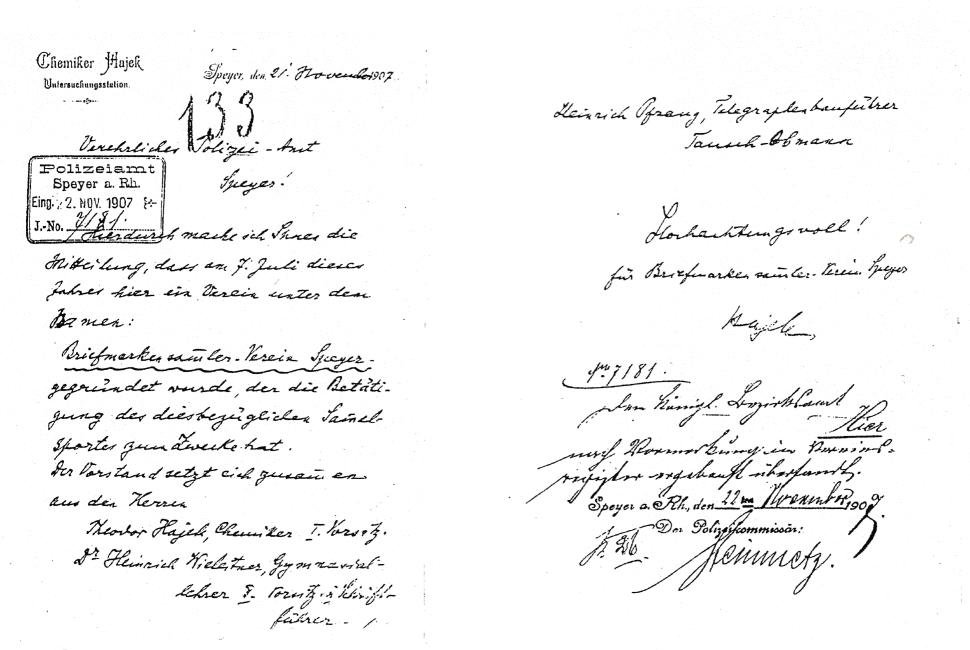 Chemiker Hajek
Untersuchungsstation.
Speyer, den 21. November 1907.
133
Verehrliches Polizei-Amt
Speyer!
Polizeiamt
Speyer a. Rh.
Eing. 22. NOV. 1907
J.-No. 7181.
Hierdurch mache ich Ihnen die
Mitteilung, dass am 7. Juli dieses
Jahres hier ein Verein unter dem
Namen:
Briefmarkensam̄ler-Verein Speyer-
gegründet wurde, der die Betäti-
gung des diesbezüglichen Sam̄el-
sportes zum Zwecke hat.
Der Vorstand setzt sich zusam̄en
aus den Herren
Theodor Hajek, Chemiker I. Vorsitz.
Dr Heinrich Wieleitner, Gymnasial-
lehrer II. Vorsitz. u. Schrift-
führer.
Heinrich Pfrang, Telegraphenbauführer
Tausch-Obmann
Hochachtungsvoll!
für Briefmarkensam̄ler-Verein Speyer
Hajek
No 7181.
Dem Königl. Bezirksamt
Hier
nach Vormerkung im Vereins-
register ergebenst übersandt.
Speyer a. Rh., den 22ten November 1907.
Der Polizeicommissär: